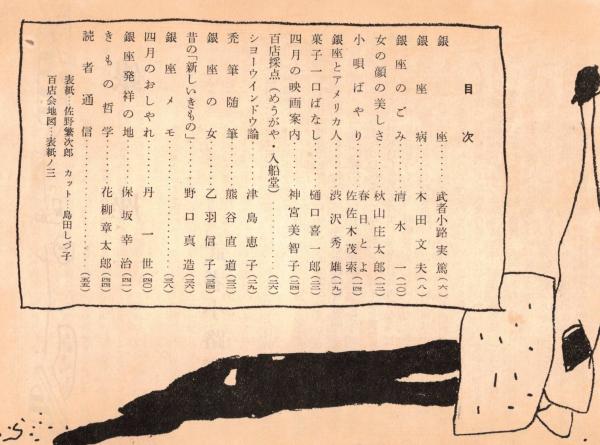 目次
銀座……武者小路実篤(六)
銀座病……木田文夫(八)
銀座のごみ……清水一(一〇)
女の顔の美しさ……秋山庄太郎(一二)
小唄ばやり……春日とよ 佐佐木茂索(一四)
銀座とアメリカ人……渋沢秀雄(一九)
菓子一口ばなし……樋口喜一郎(二二)
四月の映画案内……神宮美智子(二四)
百店採点(めうがや・入船堂)……(二六)
シヨーウインドウ論……津島恵子(二九)
禿筆随筆……熊谷直道(三二)
銀座の女……乙羽信子(三四)
昔の「新しいきもの」……野口真造(三六)
銀座メモ……(三八)
四月のおしやれ……丹一世(四〇)
銀座発祥の地……保坂幸治(四一)
きもの哲学……花柳章太郎(四四)
読者通信……(五五)
表紙…佐野繁次郎 カット…島田しづ子
百店会地図…表紙ノ三